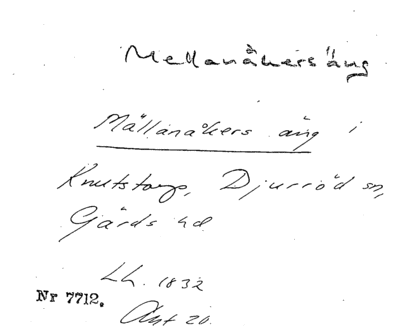 Mellanåkersäng
Mällanåkers äng i
Knutstorp, Djurröd sn,
Gärds hd
Lh. 1832
Nr 7712.
Akt 20.